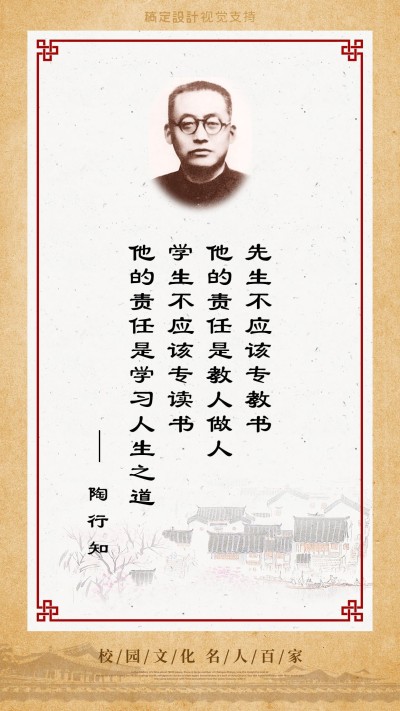 搞定設計视觉支持
先生不应该专教书
他的责任是教人做人
学生不应该专读书
他的责任是学习人生之道
——陶行知
校/园/文/化 名/人/百/家